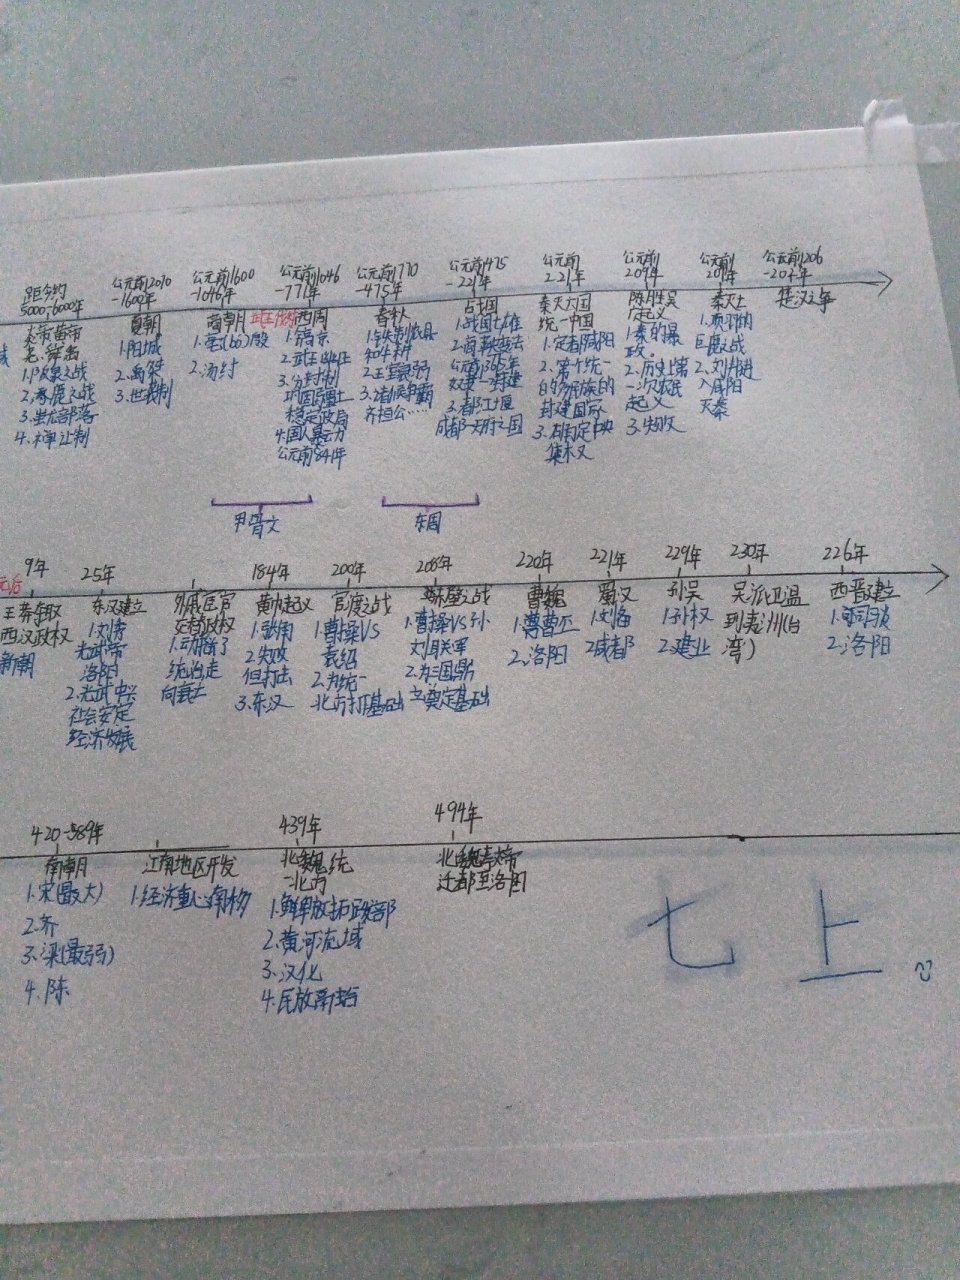 距今约
5000-6000年
炎帝黄帝
尧、舜、禹
1.阪泉之战
2.涿鹿之战
3.蚩尤部落
4.禅让制
公元前2070
-1600年
夏朝
1.阳城
2.禹 启
3.世袭制
公元前1600
-1046年
商朝
2.汤 纣
公元前1046
-771年
武王伐纣 西周
1.镐京
3.分封制
稳定政局
4.国人暴动
公元前841年
公元前770
-475年
春秋
1.铁制农具
和牛耕
2.王室衰弱
3.诸侯争霸
齐桓公……
公元前475
-221年
战国
1.战国七雄
2.商鞅变法
公元前356年
3.都江堰
成都→天府之国
公元前
221年
秦灭六国
统一中国
1.定都咸阳
2.第一个统一
的多民族的
封建国家
集权
公元前
209年
陈胜吴
广起义
1.秦的暴
政。
2.历史上第
一次农民
起义
3.失败
公元前
207年
秦灭亡
1.项羽的
巨鹿之战
2.刘邦进
入咸阳
灭秦
公元前206
-202年
楚汉之争
甲骨文
东周
9年
王莽夺取
西汉政权
新朝
25年
东汉建立
1.刘秀
光武帝
洛阳
2.光武中兴
社会安定
经济发展
外戚宦官
交替政权
1.动摇了
统治走
向衰亡
184年
黄巾起义
1.张角
2.失败
但打击
3.东汉
200年
官渡之战
1.曹操VS
袁绍
2.为统一
北方打下基础
208年
赤壁之战
1.曹操VS孙
刘联军
2.为三国鼎
立奠定基础
220年
曹魏
1.曹丕
2.洛阳
221年
蜀汉
1.刘备
2.成都
229年
孙吴
1.孙权
2.建业
230年
吴派卫温
到夷洲(台
湾)
226年
西晋建立
2.洛阳
420-589年
南朝
1.宋(最大)
2.齐
3.梁(最弱)
4.陈
江南地区开发
1.经济重心南移
439年
北魏统
一北方
1.鲜卑族拓跋部
2.黄河流域
3.汉化
4.民族交往
494年
北魏孝文帝
迁都至洛阳
七 上